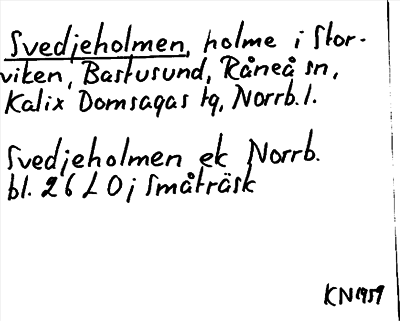 Svedjeholmen, holme i Stor-
viken, Bastusund, Råneå sn,
Kalix Domsagas tg, Norrb. l.
Svedjeholmen ek Norrb.
bl. 26 L 0 j Småträsk
KN 1959